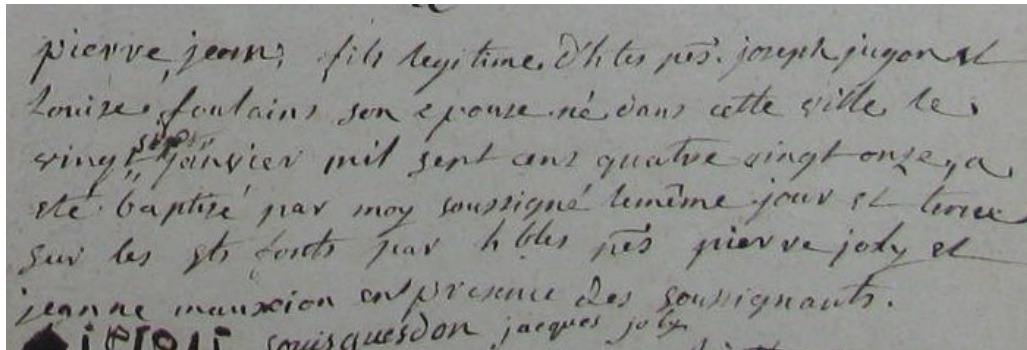 pierre, jean, fils legitime, d'hbles prs. joseph jugon et
Louise, foulains son epouse né dans cette ville le
vingt sept janvier mil sept cens quatre vingt onze, a
eté baptisé par moy soussigné le même jour et tenu
sur les sts fonts par hbles prs pierre joly et
jeanne mauxion en presence des soussignants.
Louis quesdon jacques joly